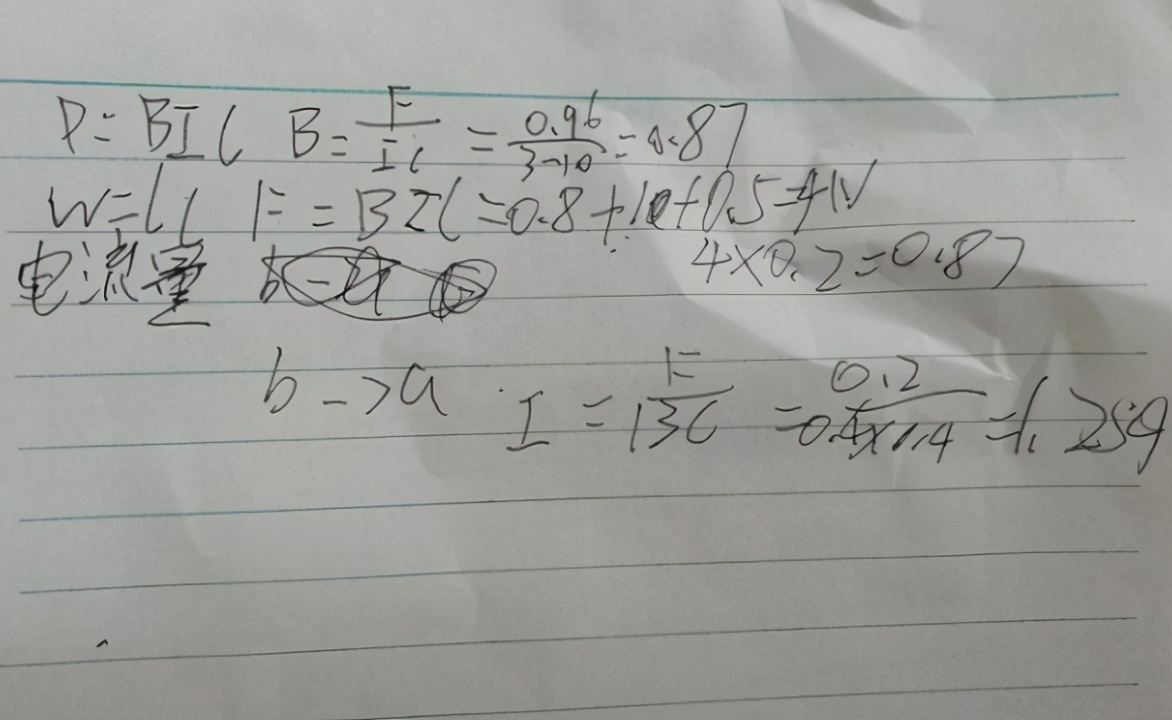 P=BIL B=F/IL=0.96/3-10=0.87
W=L( F=BIL=0.8+10+0.5=4N
4×0.2=0.8J
电流量
b->a I=F/BL=0.2/0.4×0.4=1.25A